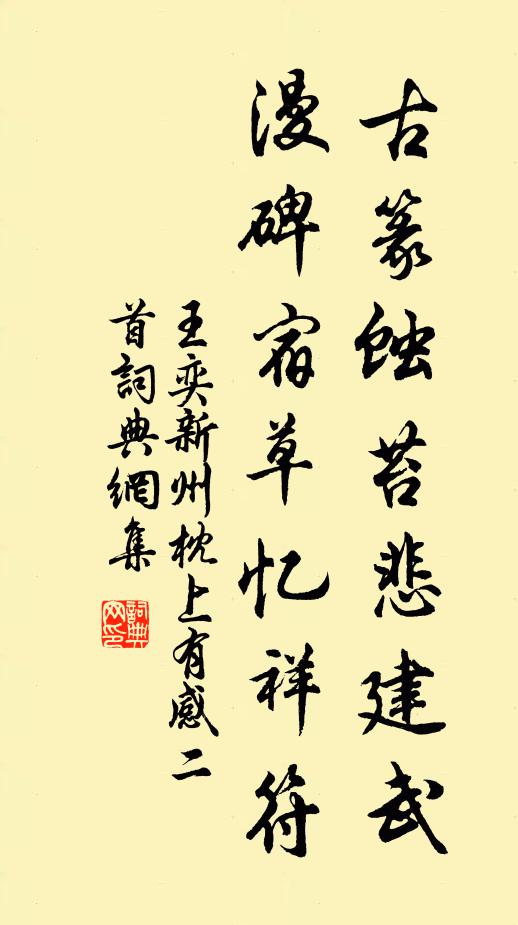 古篆蚀苔悲建武
漫碑宿草忆祥符
王奕新州枕上有感二
首詞典網集
詞典网印